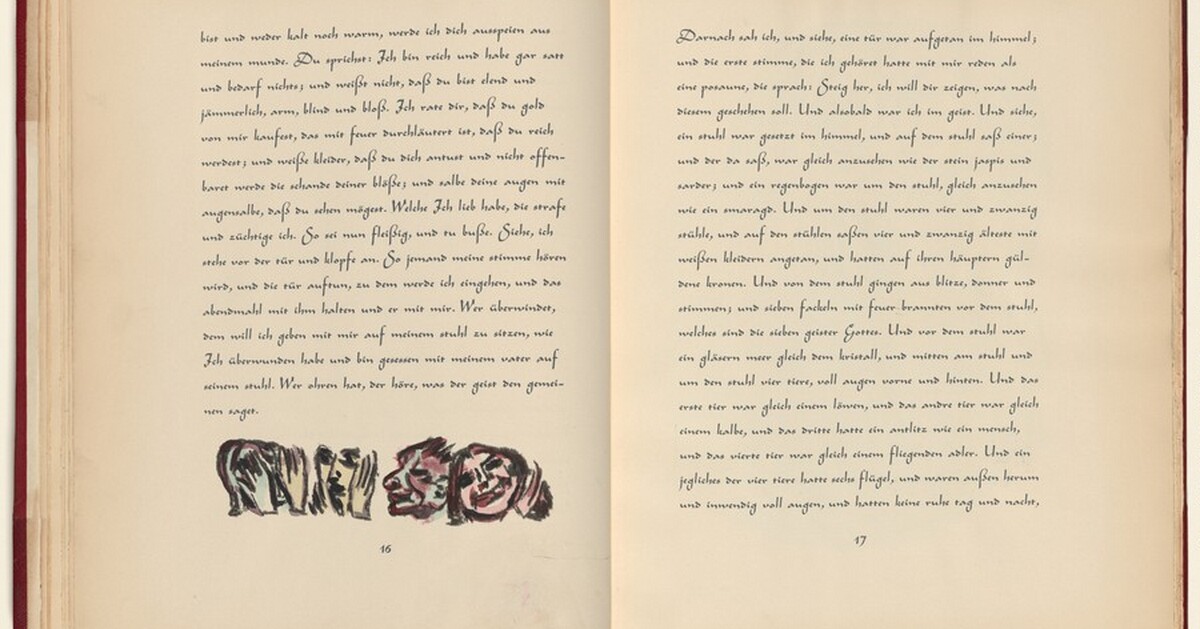 bist und weder kalt noch warm, werde ich dich ausspeien aus
meinem munde. Du sprichst: Ich bin reich und habe gar satt
und bedarf nichts; und weißt nicht, daß du bist elend und
jämmerlich, arm, blind und bloß. Ich rate dir, daß du gold
von mir kaufest, das mit feuer durchläutert ist, daß du reich
werdest; und weiße kleider, daß du dich antust und nicht offen-
baret werde die schande deiner blöße; und salbe deine augen mit
augensalbe, daß du sehen mögest. Welche Ich lieb habe, die strafe
und züchtige ich. So sei nun fleißig, und tu buße. Siehe, ich
stehe vor der tür und klopfe an. So jemand meine stimme hören
wird, und die tür auftun, zu dem werde ich eingehen, und das
abendmahl mit ihm halten und er mit mir. Wer überwindet,
dem will ich geben mit mir auf meinem stuhl zu sitzen, wie
Ich überwunden habe und bin gesessen mit meinem vater auf
seinem stuhl. Wer ohren hat, der höre, was der geist den gemei-
nen saget.
16
Darnach sah ich, und siehe, eine tür war aufgetan im himmel;
und die erste stimme, die ich gehöret hatte mit mir reden als
eine posaune, die sprach: Steig her, ich will dir zeigen, was nach
diesem geschehen soll. Und alsobald war ich im geist. Und siehe,
ein stuhl war gesetzt im himmel, und auf dem stuhl saß einer;
und der da saß, war gleich anzusehen wie der stein jaspis und
sarder; und ein regenbogen war um den stuhl, gleich anzusehen
wie ein smaragd. Und um den stuhl waren vier und zwanzig
stühle, und auf den stühlen saßen vier und zwanzig älteste mit
weißen kleidern angetan, und hatten auf ihren häuptern gül-
dene kronen. Und von dem stuhl gingen aus blitze, donner und
stimmen; und sieben fackeln mit feuer brannten vor dem stuhl,
welches sind die sieben geister Gottes. Und vor dem stuhl war
ein gläsern meer gleich dem kristall, und mitten am stuhl und
um den stuhl vier tiere, voll augen vorne und hinten. Und das
erste tier war gleich einem löwen, und das andre tier war gleich
einem kalbe, und das dritte hatte ein antlitz wie ein mensch,
und das vierte tier war gleich einem fliegenden adler. Und ein
jegliches der vier tiere hatte sechs flügel, und waren außen herum
und inwendig voll augen, und hatten keine ruhe tag und nacht,
17